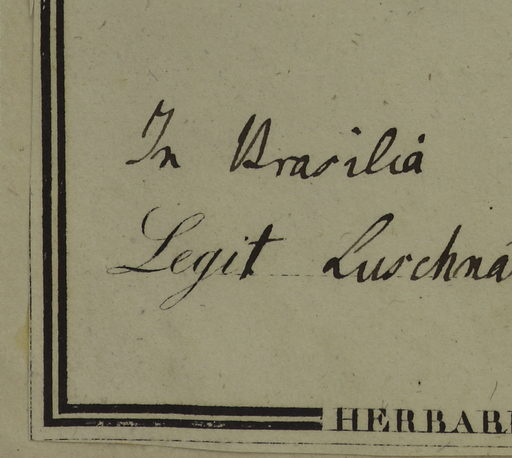 In Brasilia
Legit Luschna
HERBAR